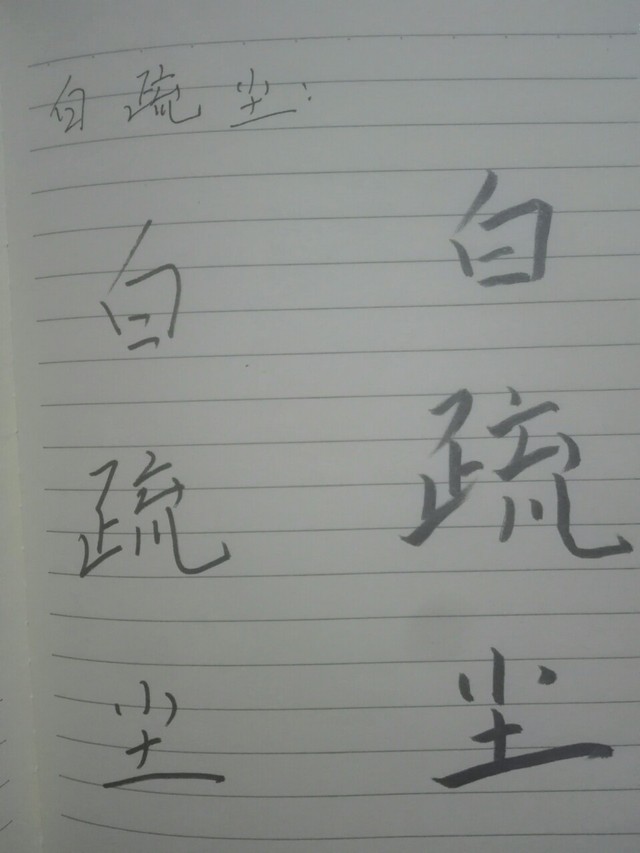 白疏尘:
白
疏
尘
白
疏
尘